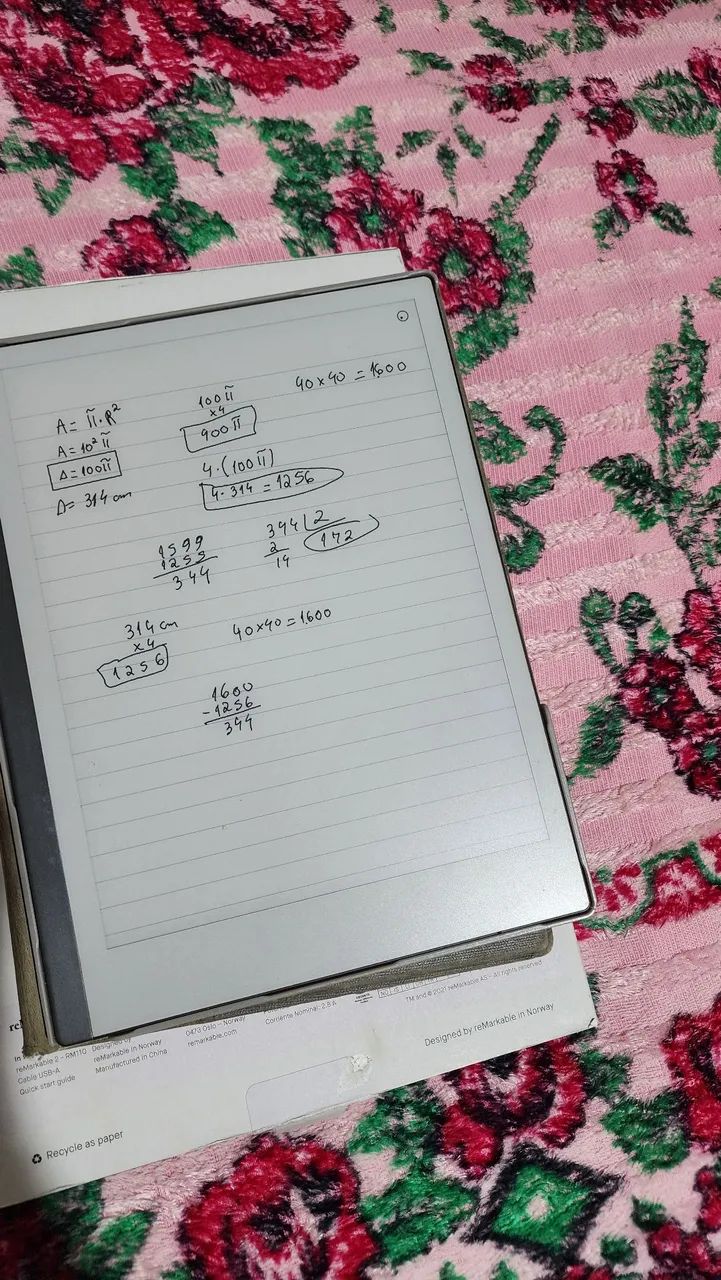 A = π·R²
A = 10² π
A = 100π
A = 314 cm
100π
x4
900π
4·(100π)
4·314 = 1256
40 x 40 = 1600
1599
1255
344
344 2
2 172
14
314 cm
x4
1256
40 x 40 = 1600
1600
-1256
344
reMarkable 2 - RM110
Cable USB-A
Quick start guide
Designed by
reMarkable in Norway
Manufactured in China
0473 Oslo - Norway
remarkable.com
Corriente Nominal: 2.8 A
TM and © 2021 reMarkable AS - All rights reserved
Designed by reMarkable in Norway
Recycle as paper